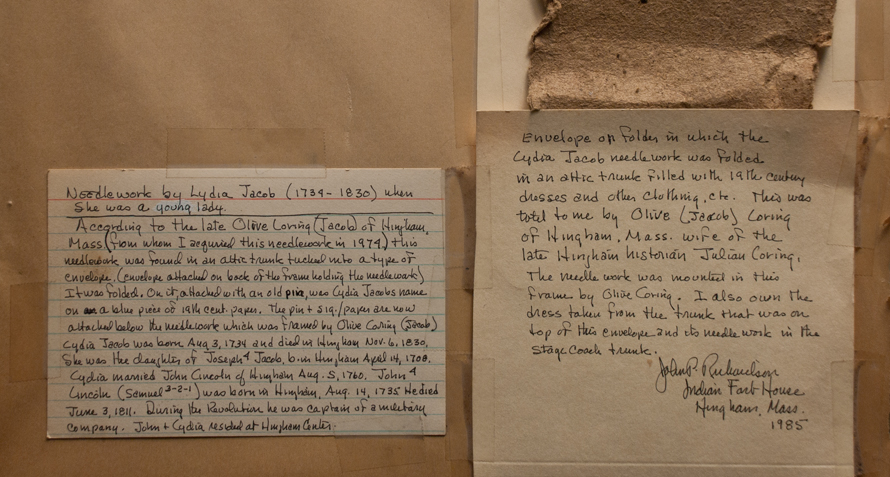 Needlework by Lydia Jacob (1734-1830) when
She was a young lady.
According to the late Olive Loring (Jacob) of Hingham,
Mass. (from whom I acquired this needlework in 1974) this
needlework was found in an attic trunk tucked into a type of
envelope. (envelope attached on back of the frame holding the needlework)
It was folded. On it, attached with an old pin, was Lydia Jacobs name
on a blue piece of 19th cent. paper. The pin + sig./paper are now
attached below the needlework which was framed by Olive Loring (Jacob)
Lydia Jacob was born Aug 3, 1734 and died in Hingham Nov. 6, 1830.
She was the daughter of Joseph⁴ Jacob, b. in Hingham April 14, 1708.
Lydia married John Lincoln of Hingham Aug. 5, 1760. John⁴
Lincoln (Samuel³⁻²⁻¹) was born in Hingham, Aug. 14, 1735 He died
June 3, 1811. During the Revolution he was captain of a military
company. John + Lydia resided at Hingham Center.
Envelope or folder in which the
Lydia Jacob needlework was folded
in an attic trunk filled with 19th century
dresses and other clothing, etc. This was
told to me by Olive (Jacob) Loring
of Hingham, Mass. wife of the
late Hingham historian Julian Loring.
The needle work was mounted in this
frame by Olive Loring. I also own the
dress taken from the trunk that was on
top of this envelope and its needle work in the
stage coach trunk.
John P. Richardson
Indian Fort House
Hingham, Mass.
1985